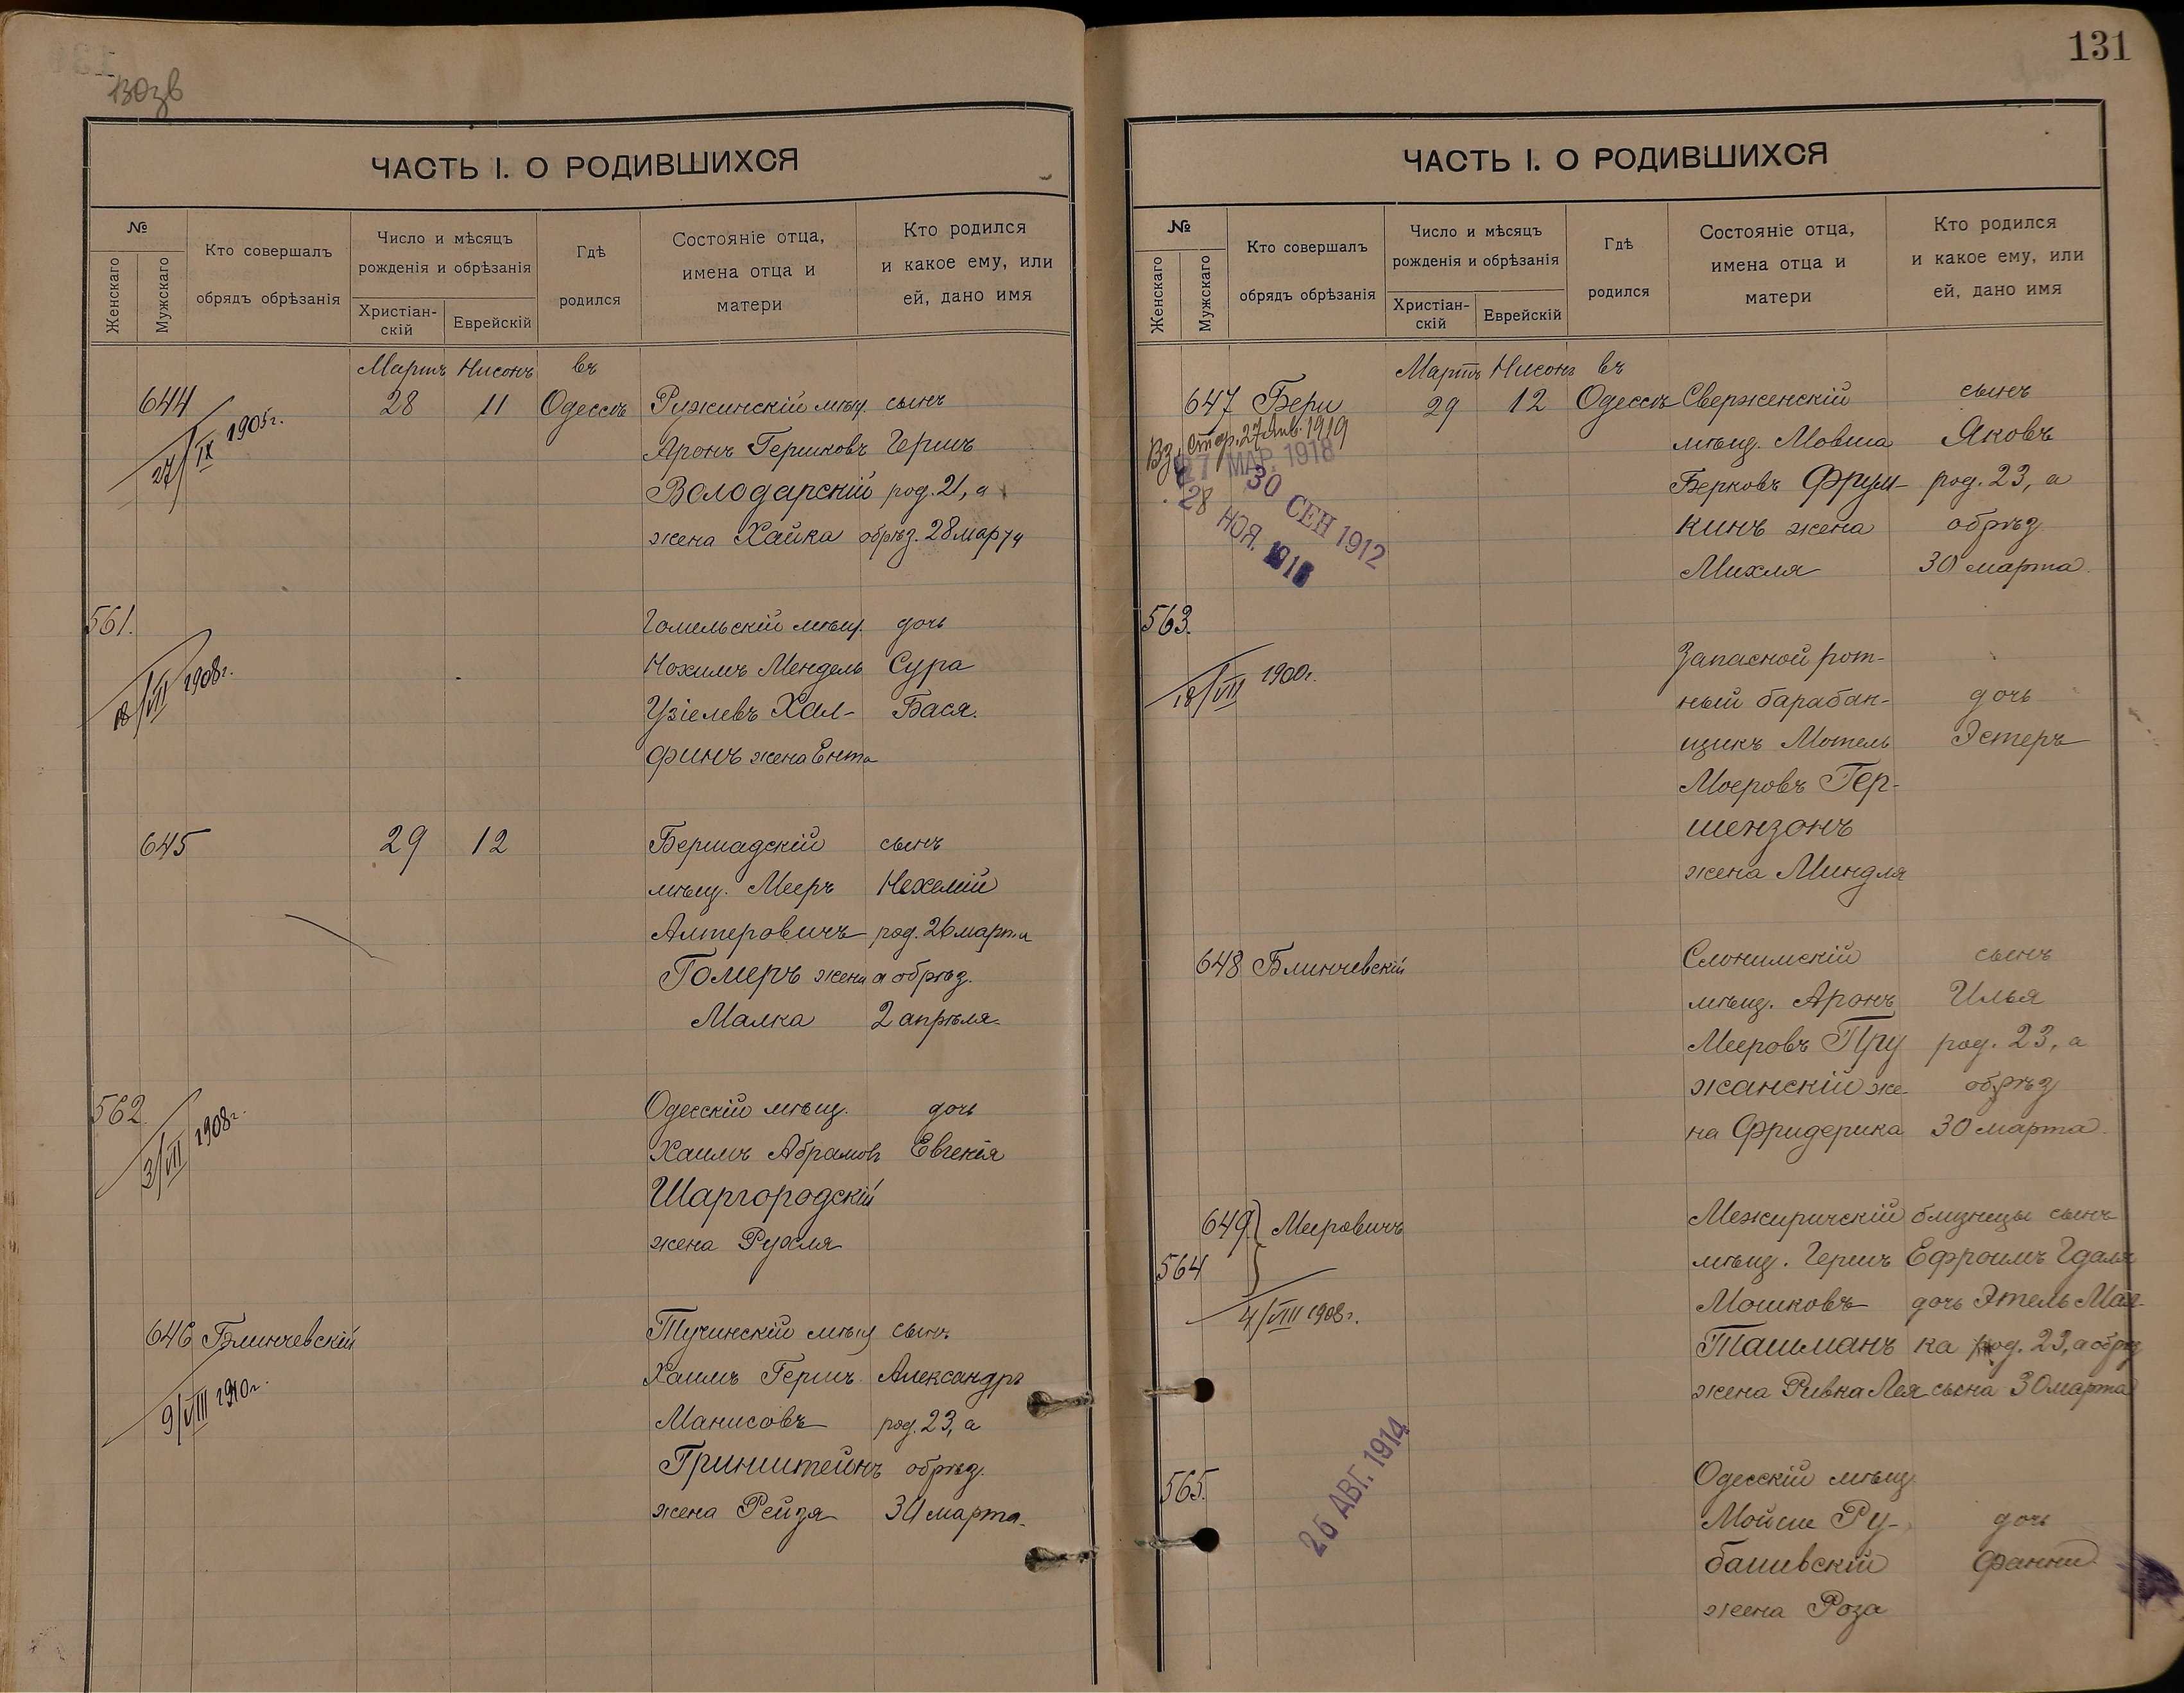 Возв
ЧАСТЬ I. О РОДИВШИХСЯ
№
Женскаго
Мужскаго
Кто совершалъ
обрядъ обрѣзанія
Число и мѣсяцъ
рожденія и обрѣзанія
Христіан-
скій
Еврейскій
Гдѣ
родился
Состояніе отца,
имена отца и
матери
Кто родился
и какое ему, или
ей, дано имя
Мартъ Нисонъ въ
644 28 11 Одессѣ Ружинскій мѣщ. сынъ
27/IX 1905г.
Аронъ Гершковъ Гершъ
Володарскій род. 21, а
жена Хайка обрѣз. 28 марта
561. Гомельскій мѣщ. дочь
18/VII 1908г.
Нохимъ Мендель Сура
Узіелевъ Хал- Бася.
финъ жена Ента
645 29 12 Бершадскій сынъ
мѣщ. Мееръ Нехемій
Алтеровичъ род. 26 марта
Гомеръ жена а обрѣз.
Малка 2 апрѣля.
562. Одесскій мѣщ. дочь
3/VII 1908г.
Хаимъ Абрамовъ Евгенія
Шаргородскій
жена Рухля
646 Блинчевскій Тучинскій мѣщ сынъ
9/VIII 1910г.
Хаимъ Гершъ Александръ
Манисовъ род. 23, а
Гринштейнъ обрѣз.
жена Рейзя 30 марта.
131
ЧАСТЬ I. О РОДИВШИХСЯ
№
Женскаго
Мужскаго
Кто совершалъ
обрядъ обрѣзанія
Число и мѣсяцъ
рожденія и обрѣзанія
Христіан-
скій
Еврейскій
Гдѣ
родился
Состояніе отца,
имена отца и
матери
Кто родился
и какое ему, или
ей, дано имя
Мартъ Нисонъ въ
647 Бери 29 12 Одессѣ Сверженскій сынъ
Вз. 27 Янв. 1919
27 МАР. 1918
30 СЕН 1912
28 НОЯ.
мѣщ. Мовша Яковъ
Берковъ Фрум- род. 23, а
кинъ жена обрѣз
Михля 30 марта.
563. Запасной рот-
18/VII 1900г.
ный барабан- дочь
щикъ Мотель Эстеръ
Моеровъ Гер-
шензонъ
жена Миндля
648 Блинчевскій Слонимскій сынъ
мѣщ. Аронъ Илья
Мееровъ Пру род. 23, а
жанскій же- обрѣз
на Фридерика 30 марта.
649 Мееровичъ Межиричскій близнецы сынъ
564 мѣщ. Гершъ Ефроимъ Гдаля
4/VIII 1908г.
Мошковъ дочь Этель Мал-
Ташманъ ка род. 23, а обрѣз
жена Ривка Лея сына 30 марта
26 АВГ. 1914
565. Одесскій мѣщ.
Мойше Ру- дочь
башевскій Фанни
жена Роза